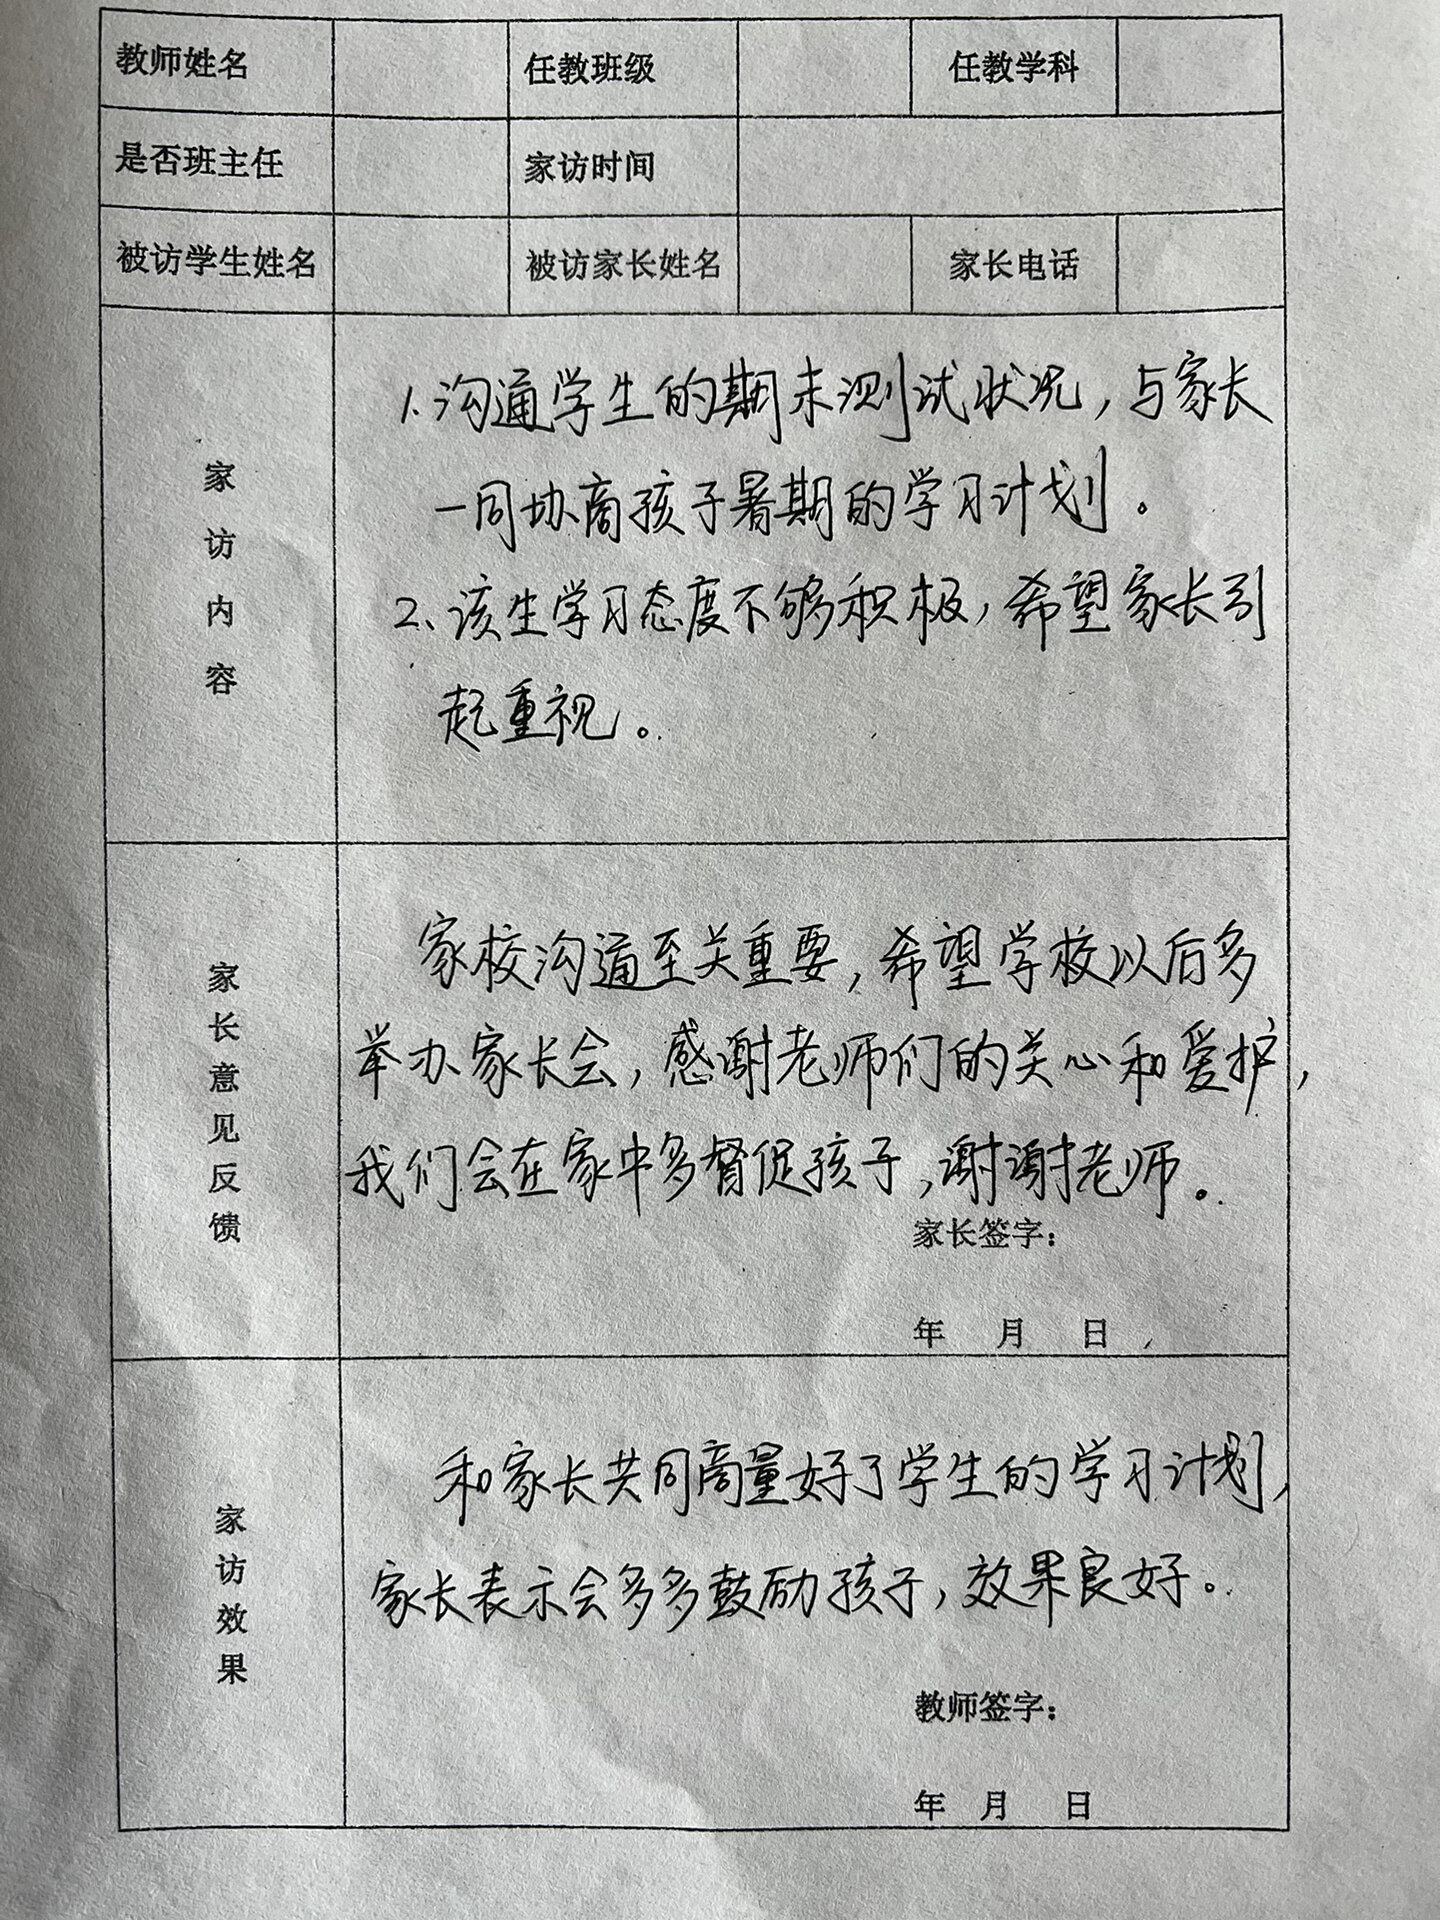 教师姓名 任教班级 任教学科
是否班主任 家访时间
被访学生姓名 被访家长姓名 家长电话
家访内容
1.沟通学生的期末测试状况,与家长
一同协商孩子暑期的学习计划。
2、该生学习态度不够积极,希望家长引
起重视。
家长意见反馈
家校沟通至关重要,希望学校以后多
举办家长会,感谢老师们的关心和爱护,
我们会在家中多督促孩子,谢谢老师。
家长签字:
年 月 日
家访效果
和家长共同商量好了学生的学习计划,
家长表示会多多鼓励孩子,效果良好。
教师签字:
年 月 日